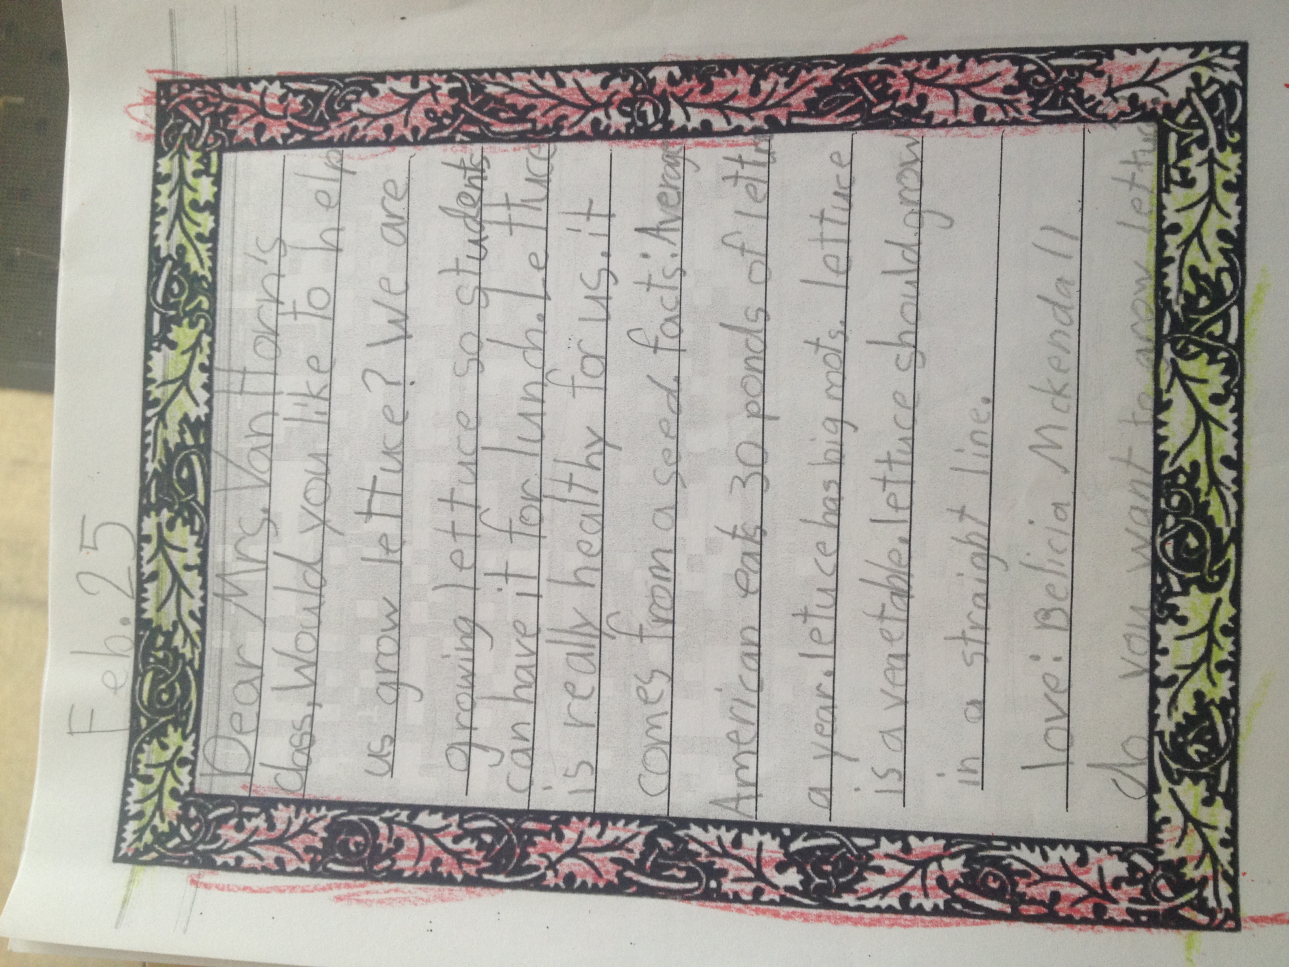 Feb. 25
Dear Mrs. Van Horn's
class, Would you like to help
us grow lettuce? We are
growing lettuce so students
can have it for lunch. Lettuce
is really healthy for us. it
comes from a seed. facts: Averag
American eats 30 ponds of lettu
a year. letuce has big roots. lettuce
is a veaetable. lettuce should grow
in a straight line.
love: Belicia Mckendall
do you want to grow lettuc